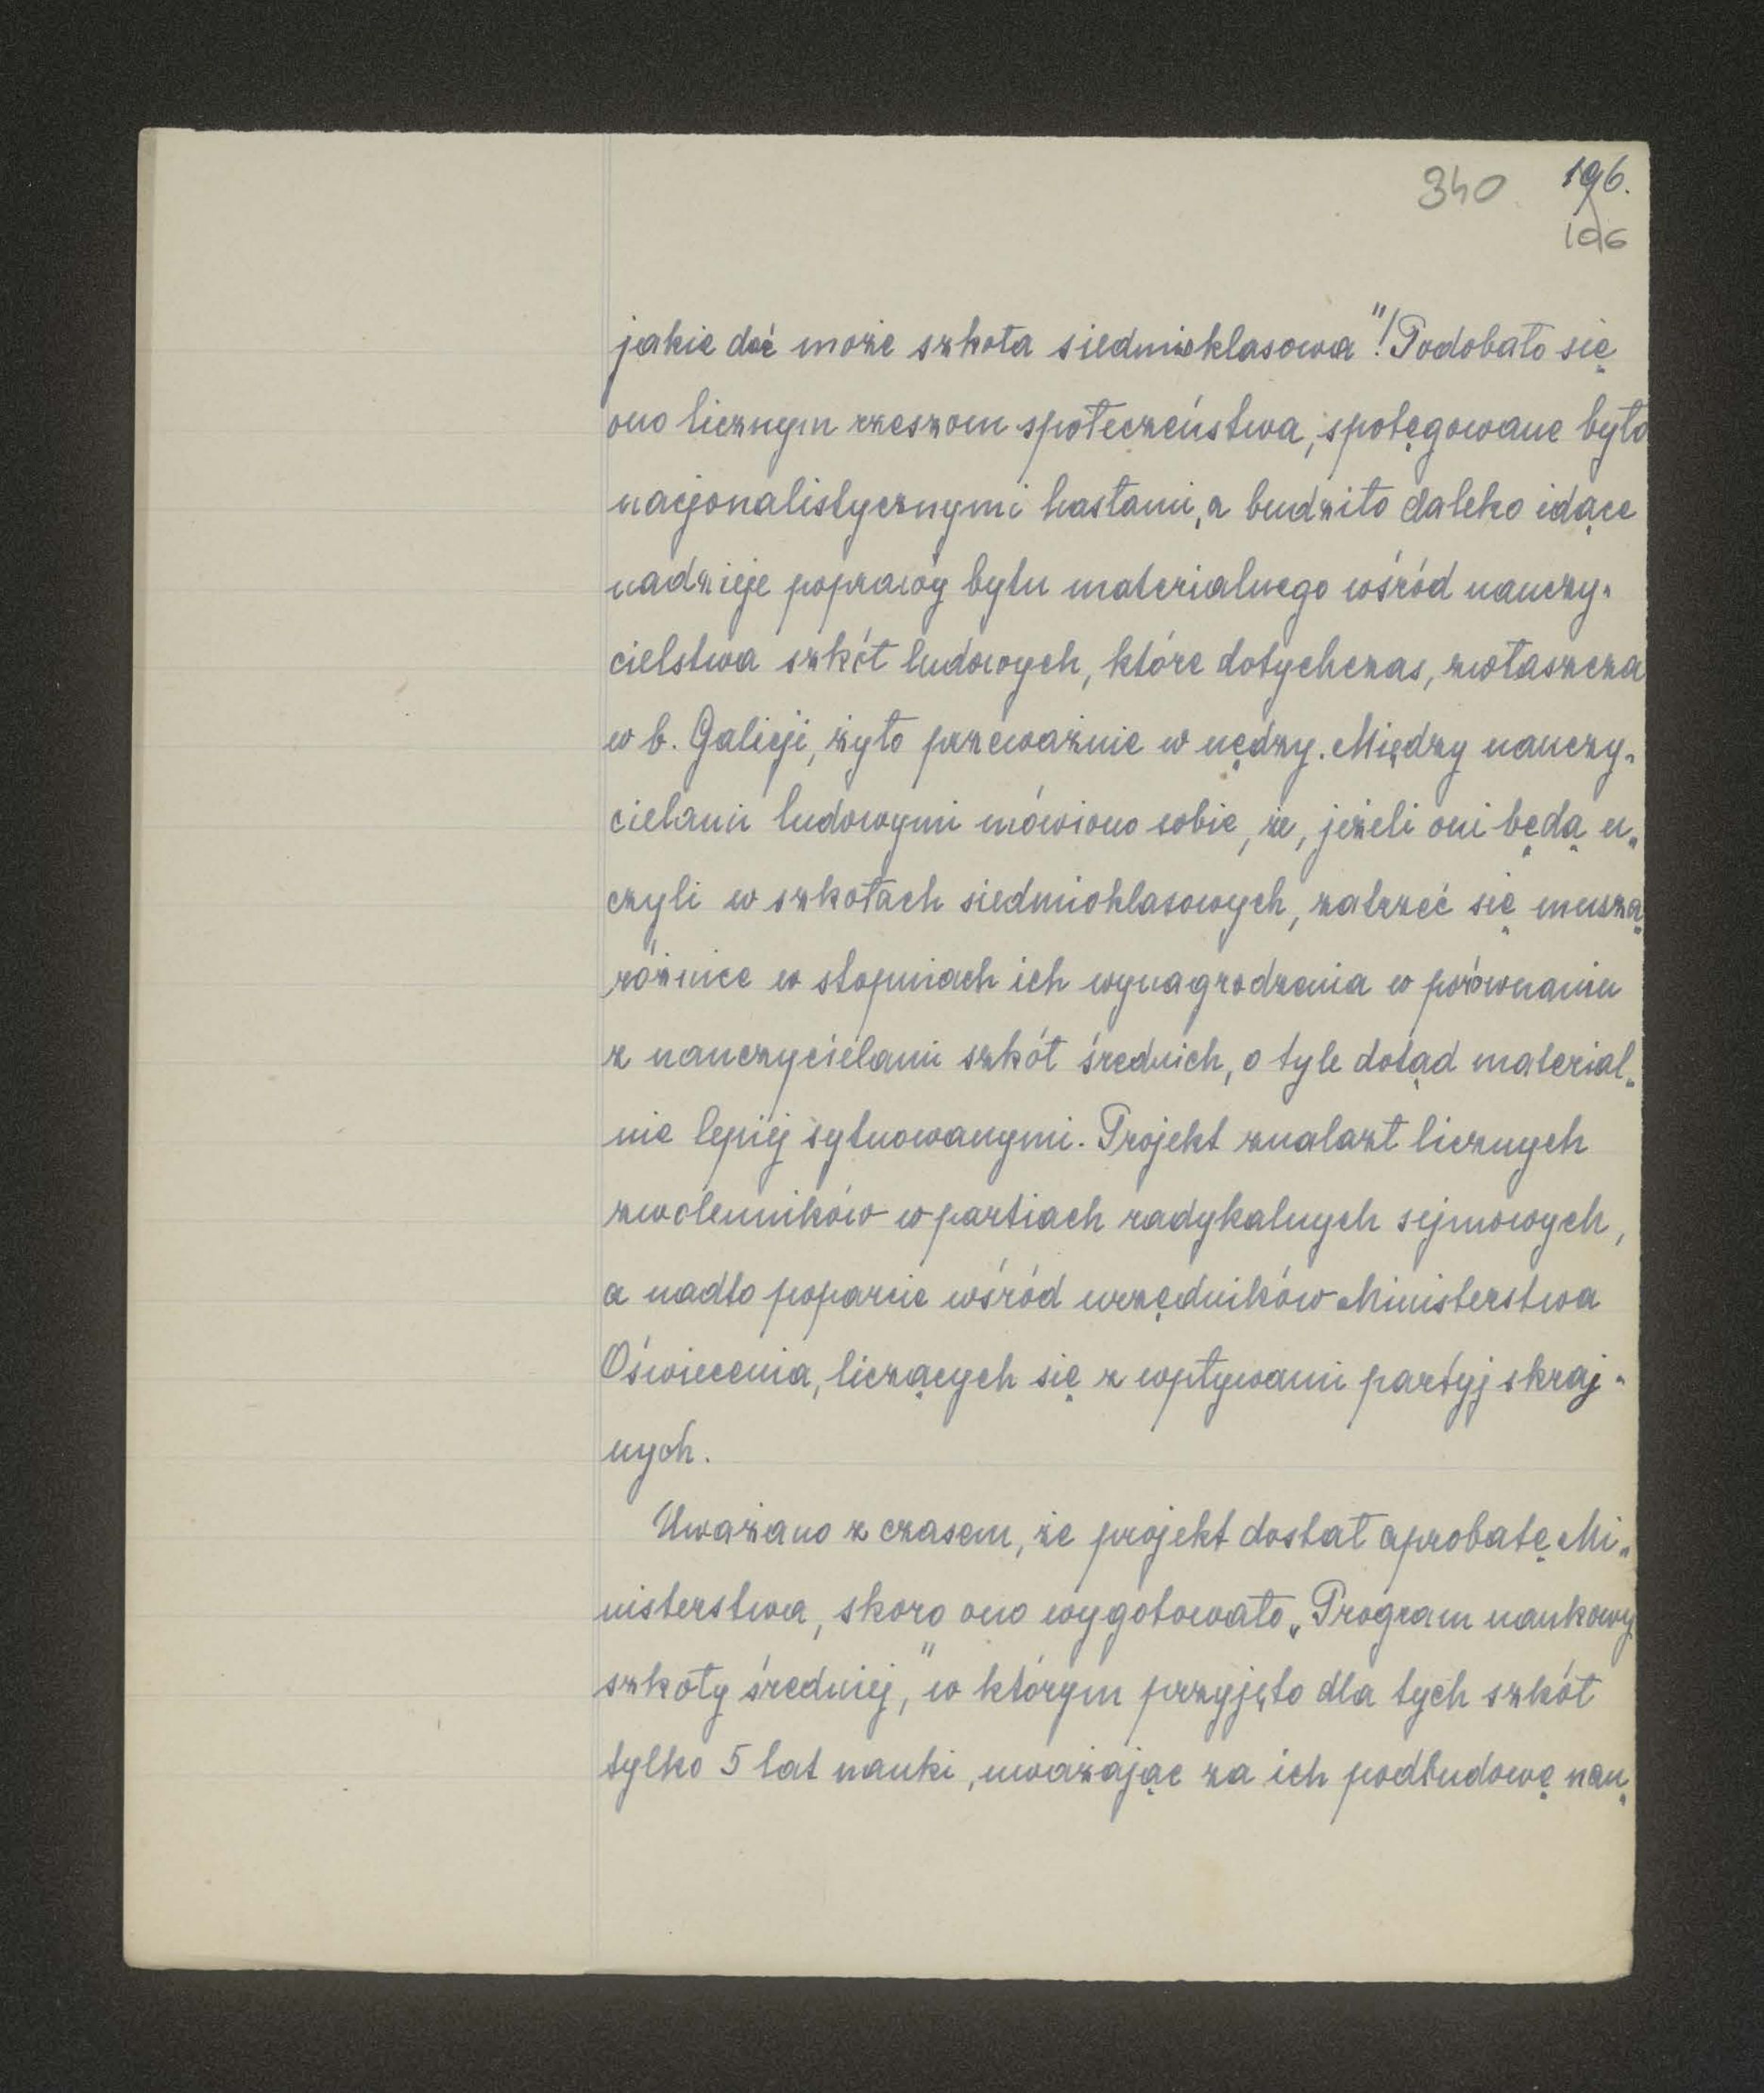 340 196.
196
jakie dać może szkoła siedmioklasowa"! Podobało się
ono licznym rzeszom społeczeństwa, spotęgowane było
nacjonalistycznymi hasłami, a budziło daleko idące
nadzieje poprawy bytu materialnego wśród nauczy-
cielstwa szkół ludowych, które dotychczas, zwłaszcza
w b. Galicji, żyło przeważnie w nędzy. Między nauczy-
cielami ludowymi mówiono sobie, że, jeżeli oni będą u-
czyli w szkołach siedmioklasowych, zatrzeć się muszą
różnice w stopniach ich wynagrodzenia w porównaniu
z nauczycielami szkół średnich, o tyle dotąd material-
nie lepiej sytuowanymi. Projekt znalazł licznych
zwolenników w partiach radykalnych sejmowych,
a nadto poparcie wśród urzędników Ministerstwa
Oświecenia, liczących się z wpływami partyj skraj-
nych.
Uważano z czasem, że projekt dostał aprobatę Mi-
nisterstwa, skoro ono wygotowało „Program naukowy
szkoły średniej," w którym przyjęto dla tych szkół
tylko 5 lat nauki, uważając za ich podbudowę nau-